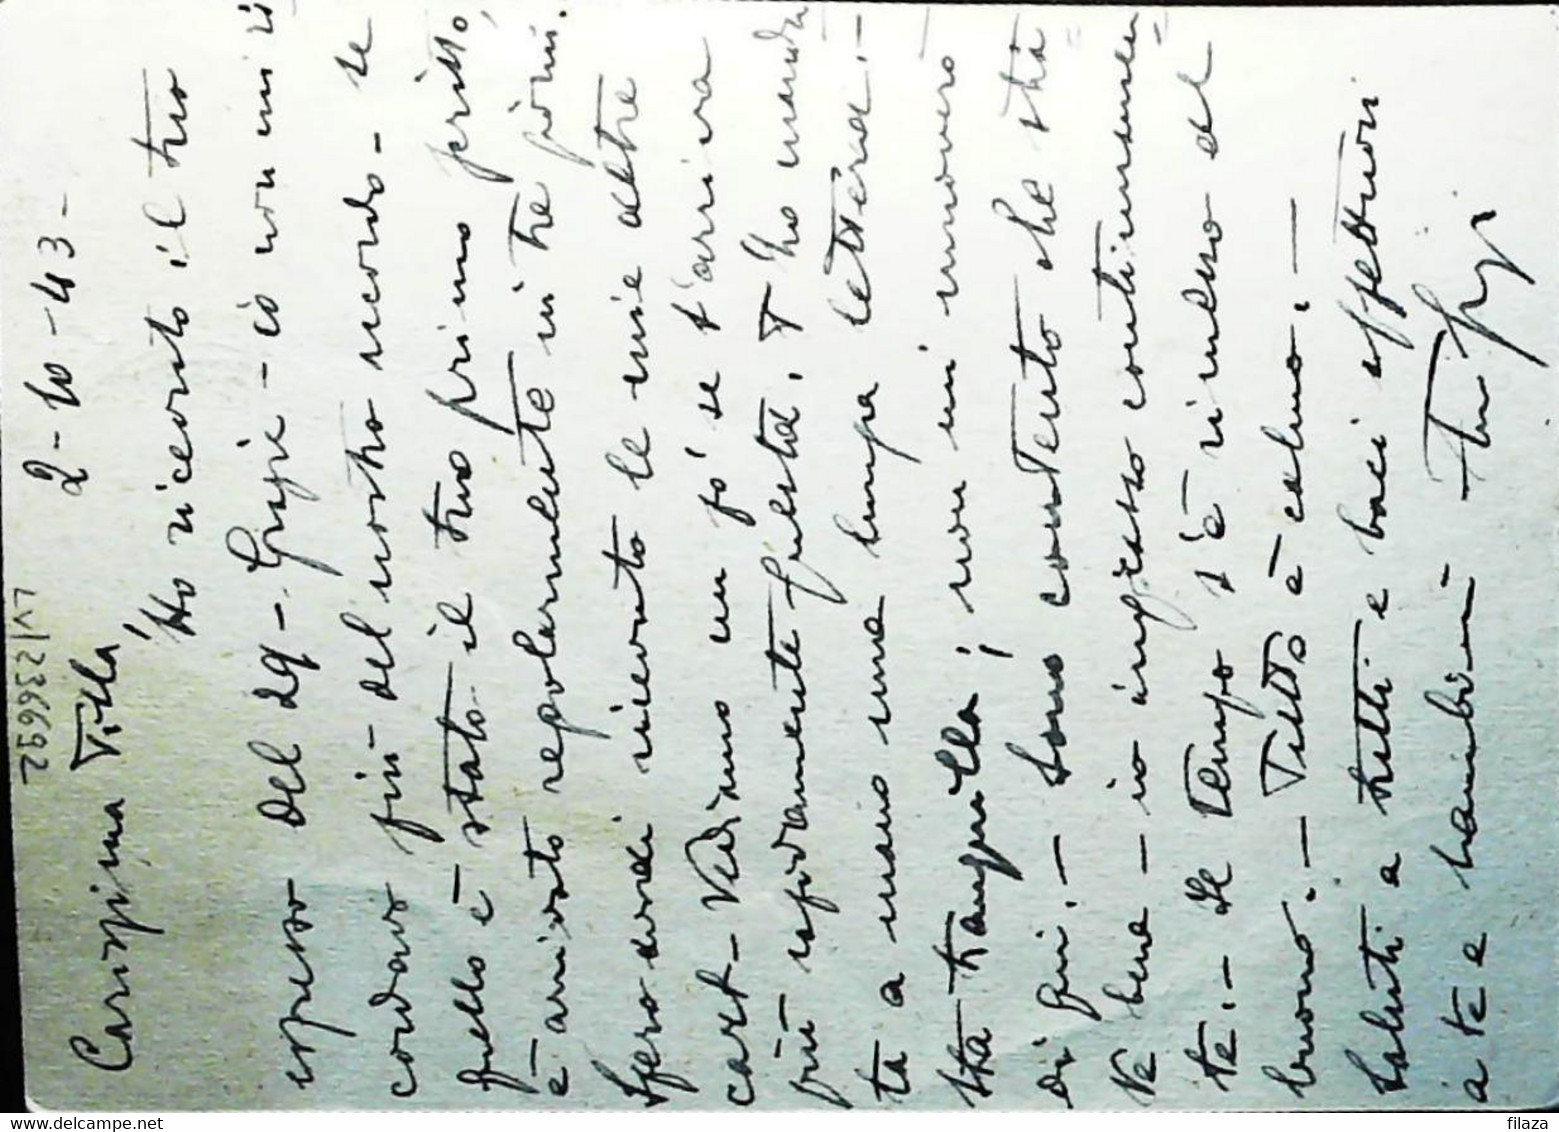 2-10-43-
Carissima Titta,
Ho ricevuto il tuo
espresso del 29- Grazie - io non mi ri
cordavo più del nostro ricordo - se
quello è stato il tuo primo scritto,
è arrivato regolarmente in tre giorni.
Spero avrai ricevuto le mie altre
cart- Vediamo un po' se t'arriva
più rapidamente questa. T'ho manda
ta a mano una lunga lettera.-
Sta tranquilla; non mi muovero
di qui.- Sono contento che stia
te bene - io ingrasso continuamen
te.- Il tempo s'è rimesso al
buono.- Tutto è calmo.-
Saluti a tutti e baci affettuosi
a te e bambini- Tuo
LV|23662
www.delcampe.net
filaza